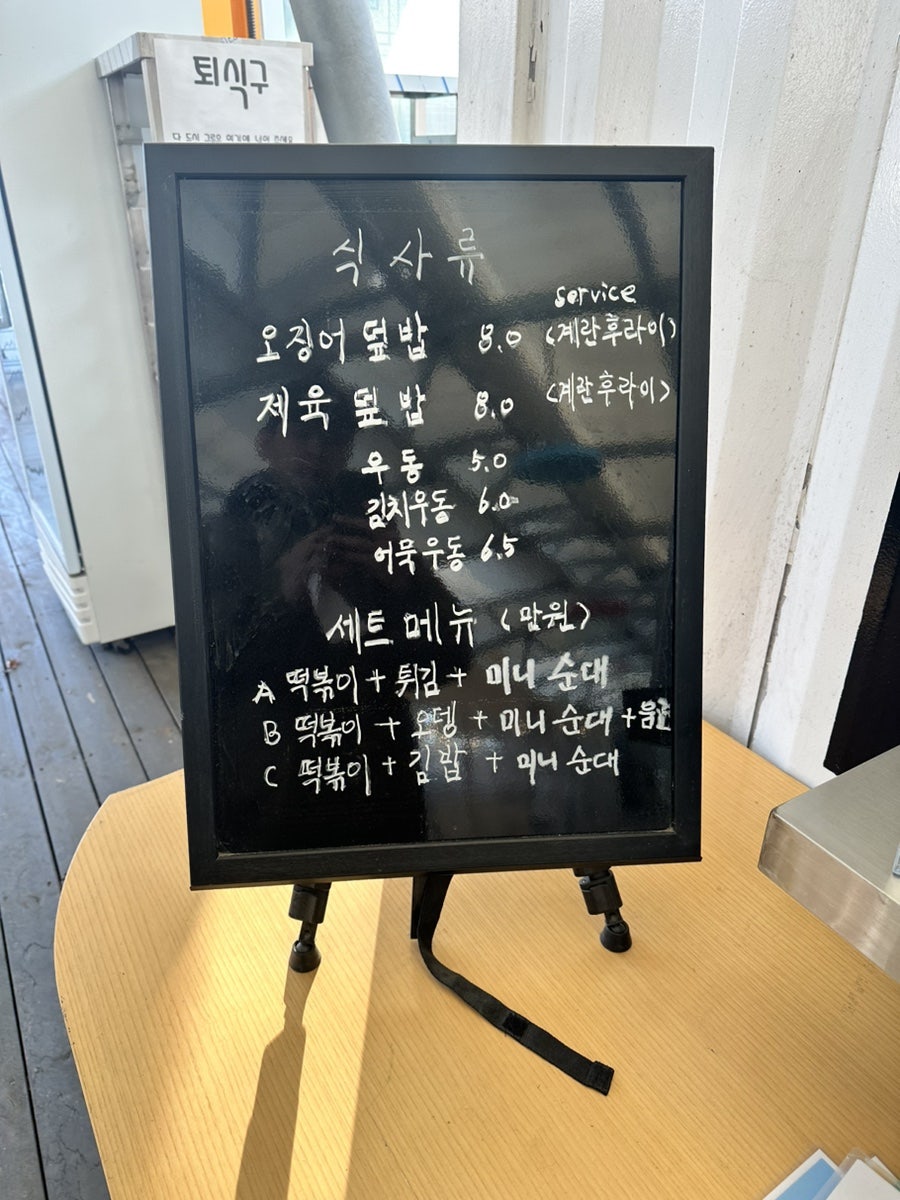 퇴식구
식사류
service
오징어 덮밥 8.0 (계란후라이)
제육 덮밥 8.0 (계란후라이)
우동 5.0
김치우동 6.0
어묵우동 6.5
세트 메뉴 (만원)
A 떡볶이 + 튀김 + 미니 순대
B 떡볶이 + 오뎅 + 미니 순대 + 음료
C 떡볶이 + 김밥 + 미니 순대